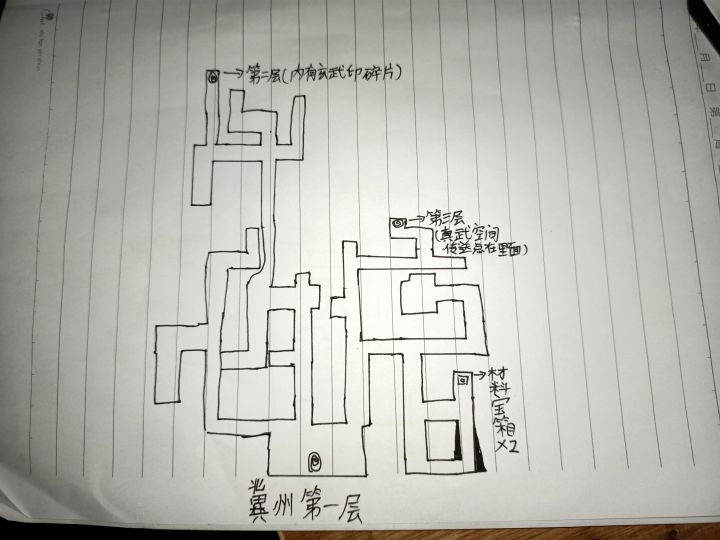 第二层(内有玄武印碎片)
第三层
(真武空间
传送点在里面)
材
料
宝
箱
×2
冀州第一层
月
日
第